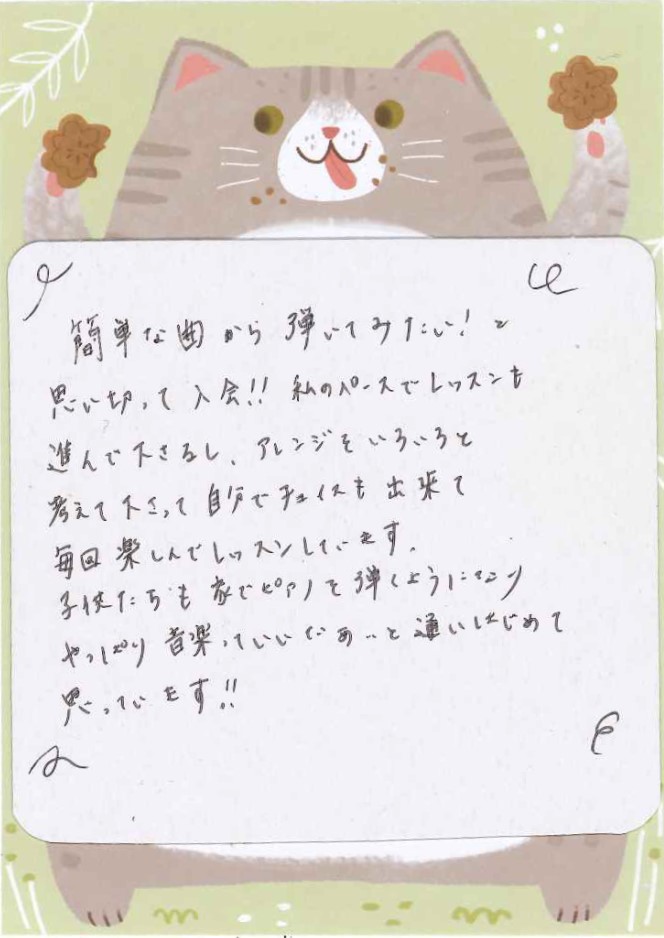 簡単な曲から弾いてみたい！と
思い切って入会!! 私のペースでレッスンも
進んで下さるし、アレンジをいろいろと
考えて下さって自分でチョイスも出来て
毎回楽しんでレッスンしています。
子供たちも家でピアノを弾くようになり
やっぱり音楽っていいなぁ…と通いはじめて
思っています!!